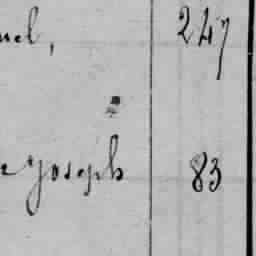 uel, 247
e Joseph 83